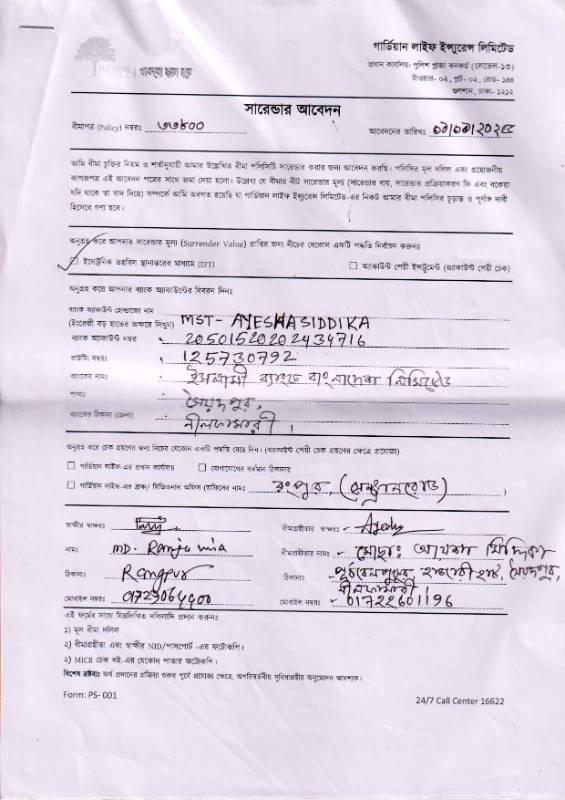 থাকবো ছায়া হয়ে
গার্ডিয়ান লাইফ ইন্স্যুরেন্স লিমিটেড
প্রধান কার্যালয়: পুলিশ প্লাজা কনকর্ড (লেভেল-১৩)
টাওয়ার- ০২, প্লট- ০২, রোড- ১৪৪
গুলশান, ঢাকা- ১২১২
সারেন্ডার আবেদন
বীমাপত্র (Policy) নম্বরঃ ৩৩৪০০ আবেদনের তারিখঃ
আমি বীমা চুক্তির নিয়ম ও শর্তানুযায়ী আমার উল্লেখিত বীমা পলিসিটি সারেন্ডার করার জন্য আবেদন করছি। পলিসির মূল দলিল এবং প্রয়োজনীয়
কাগজপত্র এই আবেদন পত্রের সাথে জমা দেয়া হলো। উল্লেখ্য যে বীমার নীট সারেন্ডার মূল্য (সারেন্ডার ব্যয়, সারেন্ডার প্রক্রিয়াকরণ ফি এবং বকেয়া
যদি থাকে তা বাদ দিয়ে) সম্পর্কে আমি অবগত হয়েছি যা গার্ডিয়ান লাইফ ইন্স্যুরেন্স লিমিটেড-এর নিকট আমার বীমা পলিসির চূড়ান্ত ও পূর্ণাঙ্গ দাবী
হিসেবে গণ্য হবে।
অনুগ্রহ করে আপনার সারেন্ডার মূল্য (Surrender Value) প্রাপ্তির জন্য নীচের যেকোন একটি পদ্ধতি নির্বাচন করুনঃ
ইলেক্ট্রনিক তহবিল স্থানান্তরের মাধ্যমে (EFT) অ্যাকাউন্ট পেয়ী ইন্সট্রুমেন্ট (অ্যাকাউন্ট পেয়ী চেক)
অনুগ্রহ করে আপনার ব্যাংক অ্যাকাউন্টের বিবরন দিনঃ
ব্যাংক অ্যাকাউন্ট হোল্ডারের নাম
(ইংরেজী বড় হাতের অক্ষরে লিখুন) MST- AYESHA SIDDIKA
ব্যাংক অ্যাকাউন্ট নম্বর : 20501520202434716
রাউটিং নম্বরঃ : 125730792
ব্যাংকের নামঃ : ইসলামী ব্যাংক বাংলাদেশ লিমিটেড
শাখাঃ সৈয়দপুর,
ব্যাংকের ঠিকানা (জেলা) নীলফামারী।
অনুগ্রহ করে চেক গ্রহণের জন্য নিচের যেকোন একটি পদ্ধতি বেছে নিন। (অ্যাকাউন্ট পেয়ী চেক গ্রহণের ক্ষেত্রে প্রযোজ্য)
গার্ডিয়ান লাইফ-এর প্রধান কার্যালয় যোগাযোগের বর্তমান ঠিকানায়
গার্ডিয়ান লাইফ-এর ব্রাঞ্চ/ রিজিওনাল অফিস (অফিসের নামঃ রংপুর, )
স্বাক্ষীর স্বাক্ষরঃ বীমাগ্রহীতার স্বাক্ষরঃ
নামঃ MD. Ranju mia বীমাগ্রহীতার নামঃ মোছাঃ আয়শা সিদ্দিকা
ঠিকানাঃ Rangpur ঠিকানাঃ সৈয়দপুর,
নীলফামারী।
মোবাইল নম্বরঃ মোবাইল নম্বরঃ 01722601196
এই ফর্মের সাথে নিম্নলিখিত দলিলাদি প্রদান করুনঃ
১) মূল বীমা দলিল
২) বীমাগ্রহীতা এবং স্বাক্ষীর NID/পাসপোর্ট -এর ফটোকপি।
৩) MICR চেক বই-এর যেকোন পাতার ফটোকপি।
বিশেষ দ্রষ্টব্যঃ অর্থ প্রদানের প্রক্রিয়া শুরুর পূর্বে প্রযোজ্য ক্ষেত্রে, অপরিবর্তনীয় সুবিধাগ্রহীর অনুমোদন আবশ্যক।
Form: PS- 001 24/7 Call Center 16622